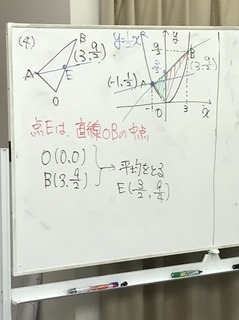 (4)
B
(3, 9/2)
A
E
O
y=1/2x²
y
9/2
B
(3, 9/2)
(-1, 1/2)
A
-1
O
3
x
点Eは、直線OBの中点
O(0,0)
B(3, 9/2)
平均をとる
E(3/2, 9/4)